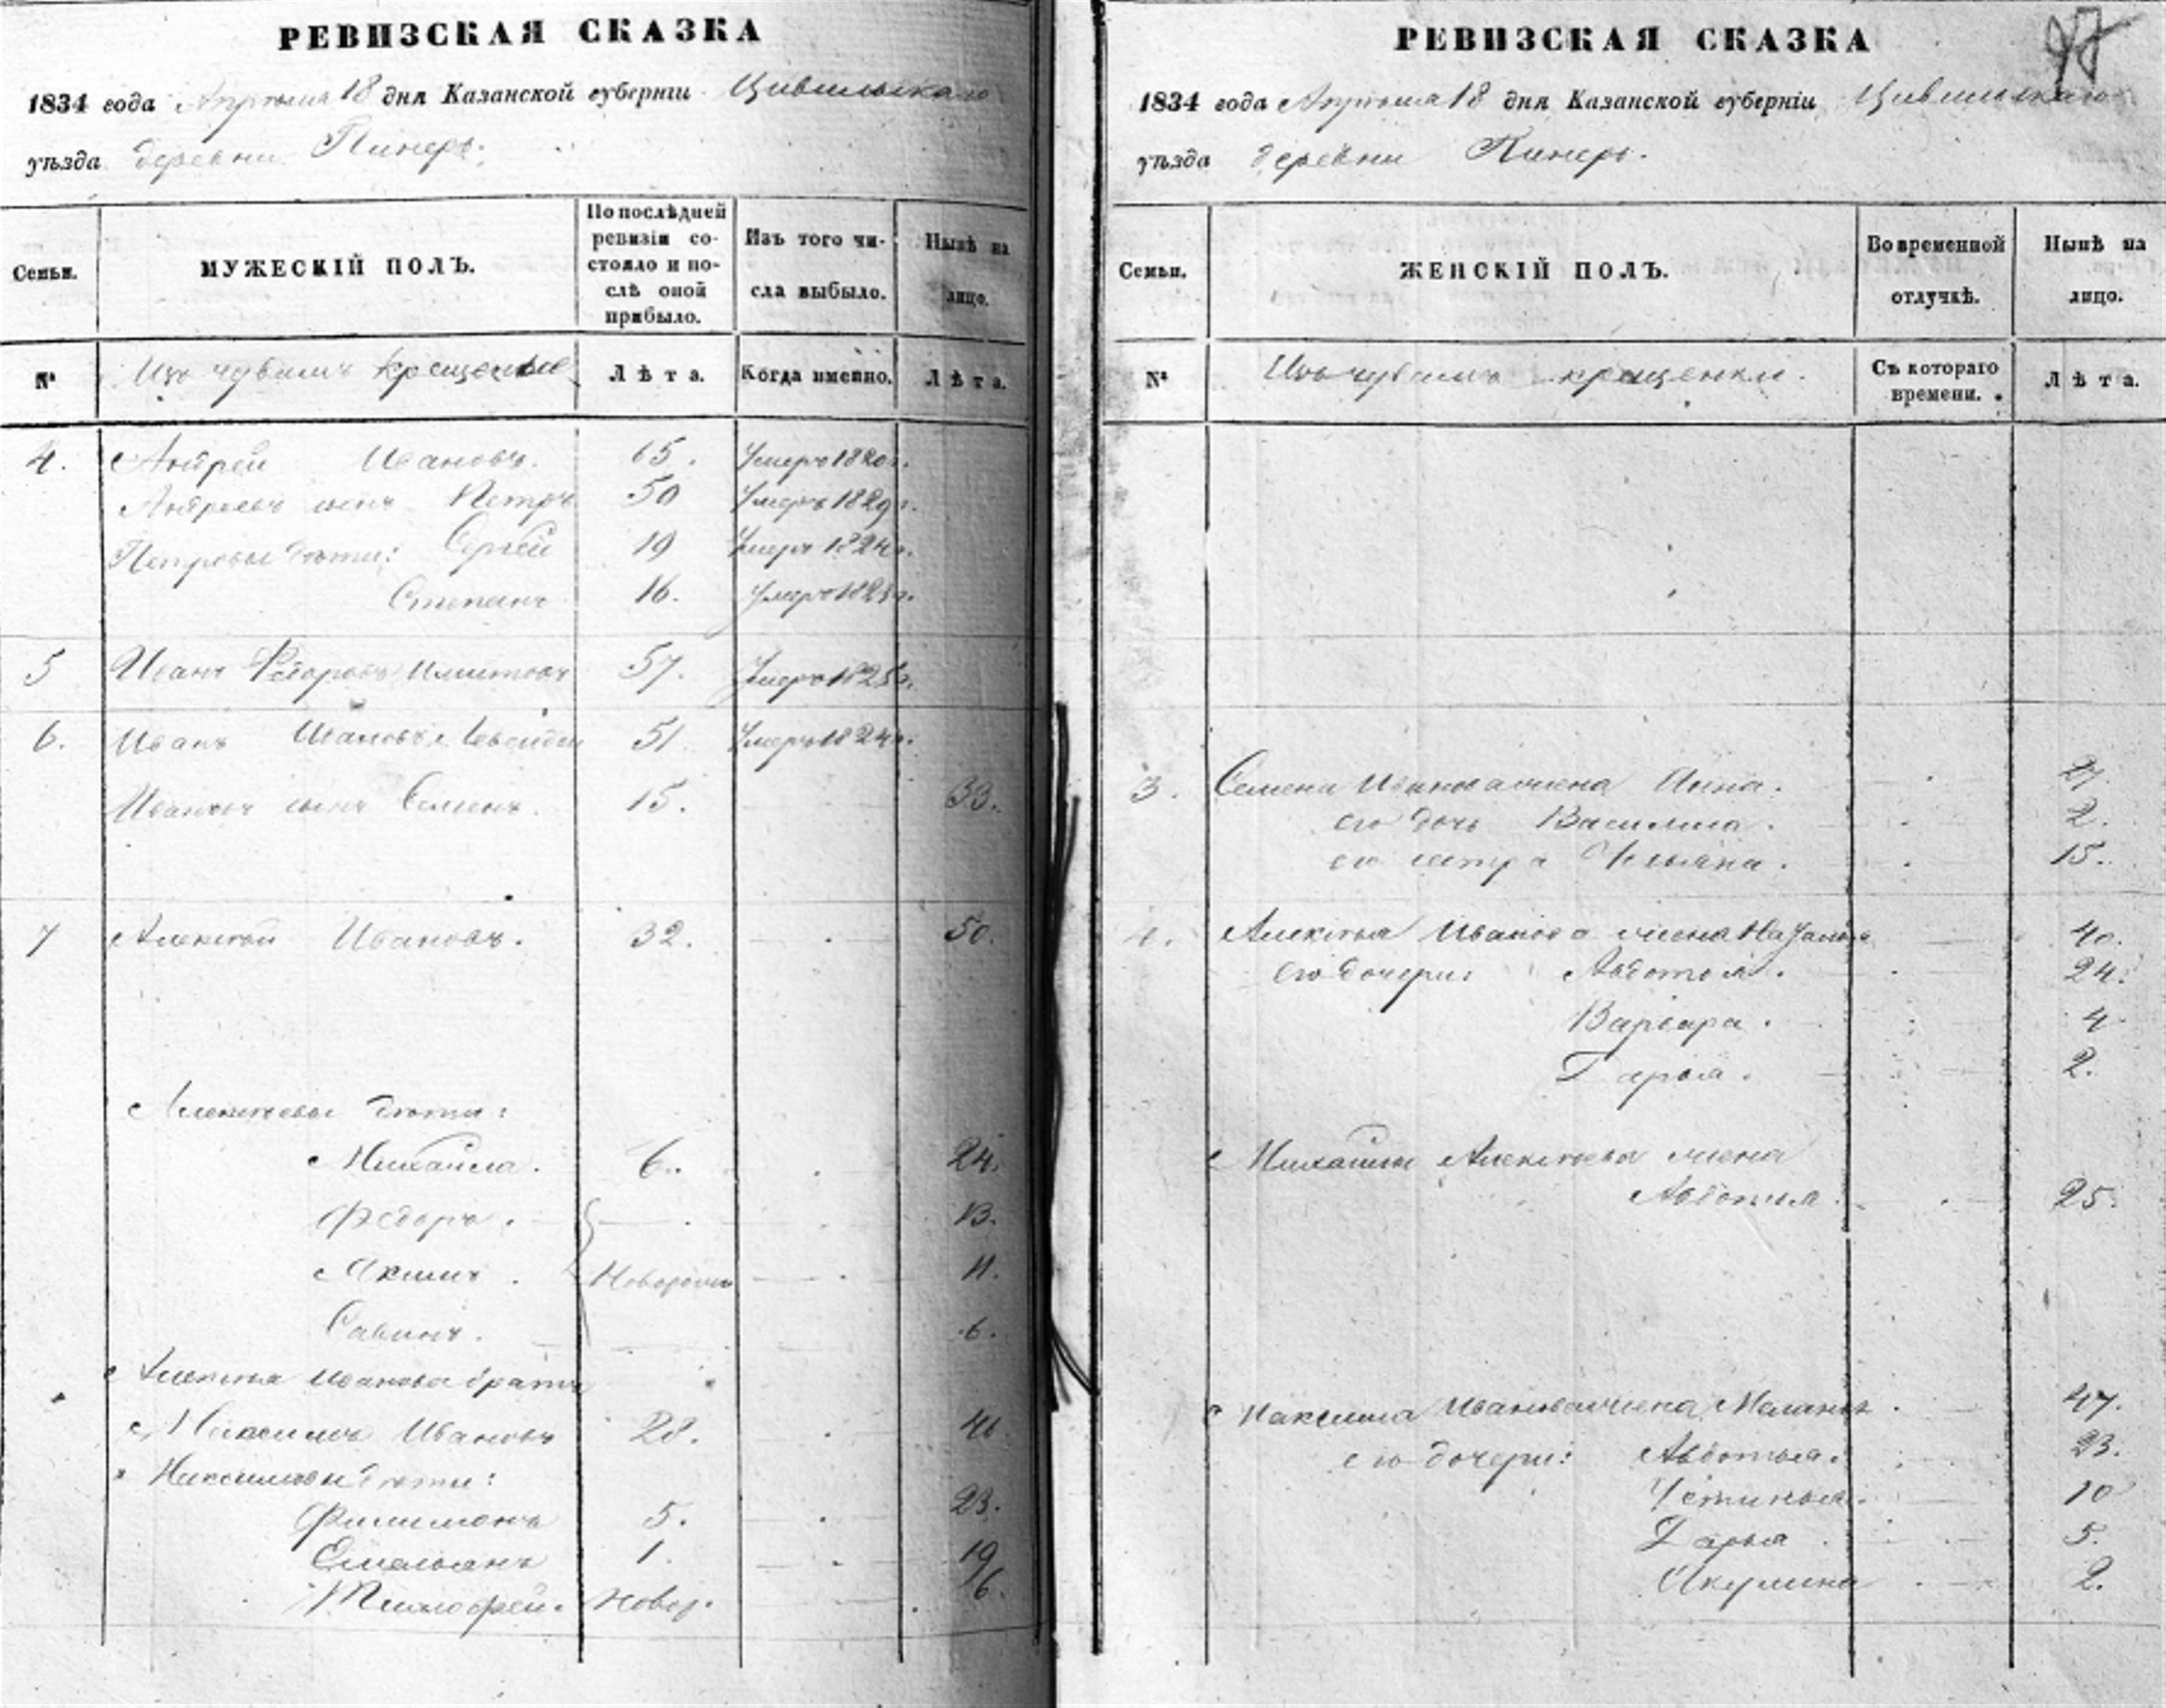 РЕВИЗСКАЯ СКАЗКА
1834 года Апрѣля 18 дня Казанской губерніи Цивильскаго
уѣзда деревни Пинеръ.
Семьи.
МУЖЕСКІЙ ПОЛЪ.
По послѣдней
ревизіи со-
стояло и по-
слѣ оной
прибыло.
Изъ того чи-
сла выбыло.
Нынѣ на
лицо.
№
Изъ чувашъ крещеные
Лѣта.
Когда именно.
Лѣта.
4. Андрей Ивановъ. 65. Умеръ 1820 г.
Андреевъ сынъ Петръ 50 Умеръ 1829 г.
Петровы дѣти: Сергей 19 Умеръ 1824 г.
Степанъ 16. Умеръ
5 Иванъ Федоровъ 57. Умеръ
6. Иванъ Ивановъ 51 Умеръ 1824 г.
Ивановъ сынъ Семенъ. 15. 33.
7 Алексѣй Ивановъ. 32. 50.
Алексѣевы дѣти:
Михайла. 6. 24.
Федоръ. 13.
Якимъ. Новорож 11.
Савинъ. 6.
Алексѣя Иванова братъ
Максимъ Ивановъ 28. 46
Максимовы дѣти:
Филимонъ 5. 23.
Емельянъ 1. 19
Тимофей. новор. 6.
РЕВИЗСКАЯ СКАЗКА
1834 года Апрѣля 18 дня Казанской губерніи Цивильскаго
уѣзда деревни Пинеръ.
Семьи.
ЖЕНСКІЙ ПОЛЪ.
Во временной
отлучкѣ.
Нынѣ на
лицо.
№
Изъ чувашъ крещенки.
Съ котораго
времени.
Лѣта.
3. Семена Иванова жена Анна. 27.
его дочь Василиса. 2.
его сестра Ульяна. 15.
4. Алексѣя Иванова жена Наталья 40.
его дочери: Авдотья. 24.
Варвара. 4.
Дарья. 2.
Михайлы Алексѣева жена
Авдотья. 25.
Максима Иванова жена Маланья 47.
его дочери: Авдотья. 23.
Устинья. 10
Дарья. 5.
Акулина 2.